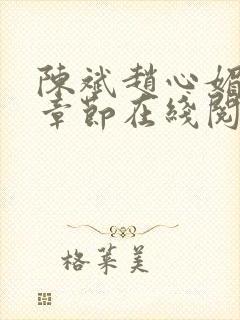 陳斌趙心媚
章節在綫閱
格萊美